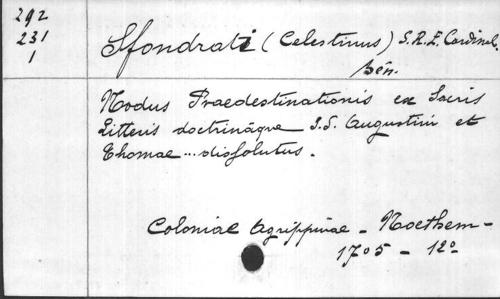 292
231
1
Sfondrati (Celestinus) S.R.E. Cardinal.
bén.
Nodus Praedestinationis ex Sacris
Litteris doctrinâque S.S. Augustini et
Thomae ... dissolutus.
Coloniae Agrippinae - Noethem -
1705 - 12º